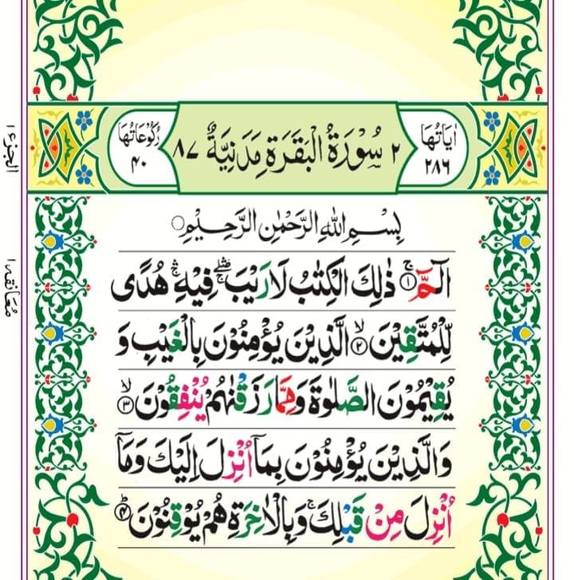 اٰيَاتُهَا ٢٨٦
٢ سُوْرَةُ الْبَقَرَةِ مَدَنِيَّةٌ ٨٧
رُكُوْعَاتُهَا ٤٠
بِسْمِ اللّٰهِ الرَّحْمٰنِ الرَّحِيْمِ
الٓمّٓ ۚ‏﴿١﴾ ذٰلِكَ الْكِتٰبُ لَا رَيْبَ ۛۖ فِيْهِ ۛۚ هُدًى
لِّلْمُتَّقِيْنَ ۙ‏﴿٢﴾ الَّذِيْنَ يُؤْمِنُوْنَ بِالْغَيْبِ وَ
يُقِيْمُوْنَ الصَّلٰوةَ وَمِمَّا رَزَقْنٰهُمْ يُنْفِقُوْنَ ۙ‏﴿٣﴾
وَالَّذِيْنَ يُؤْمِنُوْنَ بِمَاۤ اُنْزِلَ اِلَيْكَ وَمَاۤ
اُنْزِلَ مِنْ قَبْلِكَ ۚ وَبِالْاٰخِرَةِ هُمْ يُوْقِنُوْنَ ؕ‏﴿٤﴾
الجزء ١
معانقه ١